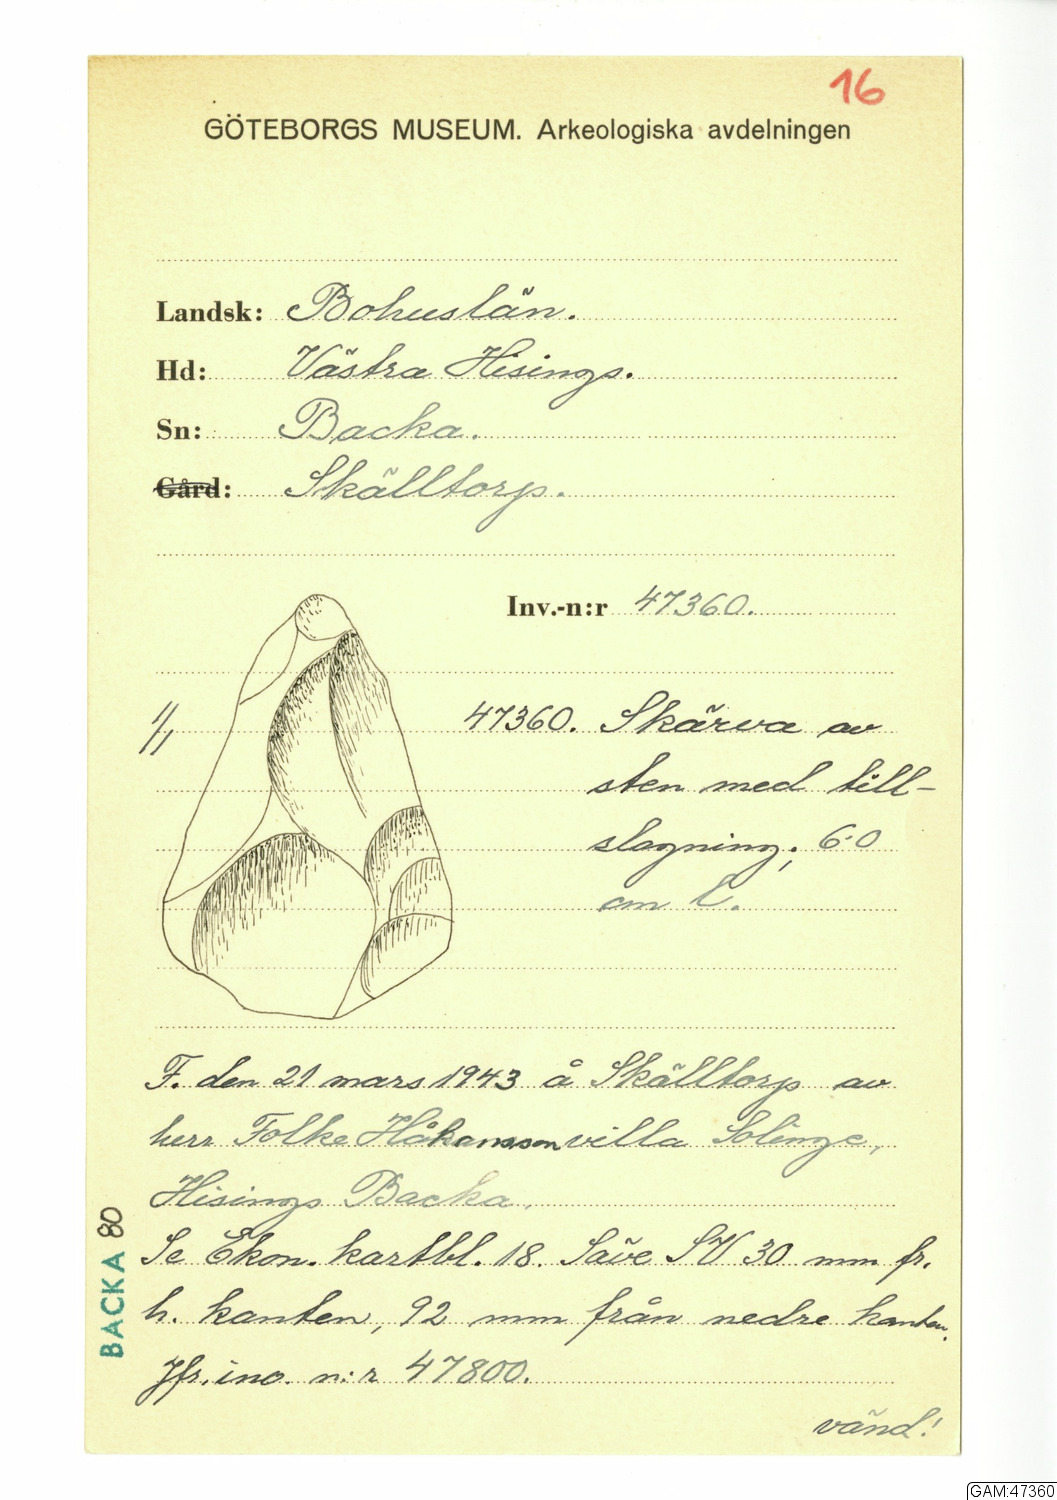 16
GÖTEBORGS MUSEUM. Arkeologiska avdelningen
Landsk: Bohuslän.
Hd: Västra Hisings.
Sn: Backa.
Gård: Skälltorp.
Inv.-n:r 47360.
1/1
47360. Skärva av
sten med till-
slagning; 6.0
cm l.
F. den 21 mars 1943 å Skälltorp av
herr Folke Håkansson villa Solinge,
Hisings Backa.
Se Ekon. kartbl. 18. Säve SV 30 mm fr.
h. kanten, 92 mm från nedre kanten.
Jfr. inv. n:r 47800.
vänd!
BACKA 80
GAM:47360